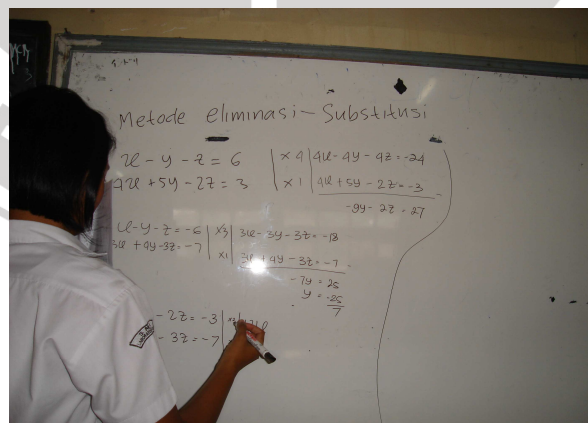 Metode eliminasi - Substitusi
x - y - z = 6 | × 4 | 4x - 4y - 4z = -24
4x + 5y - 2z = 3 | × 1 | 4x + 5y - 2z = -3 -
-9y - 2z = 27
x - y - z = -6 | ×3 | 3x - 3y - 3z = -18
3x + 4y - 3z = -7 | ×1 | 3x + 4y - 3z = -7 -
-7y = 25
y = -25/7
- 2z = -3
- 3z = -7